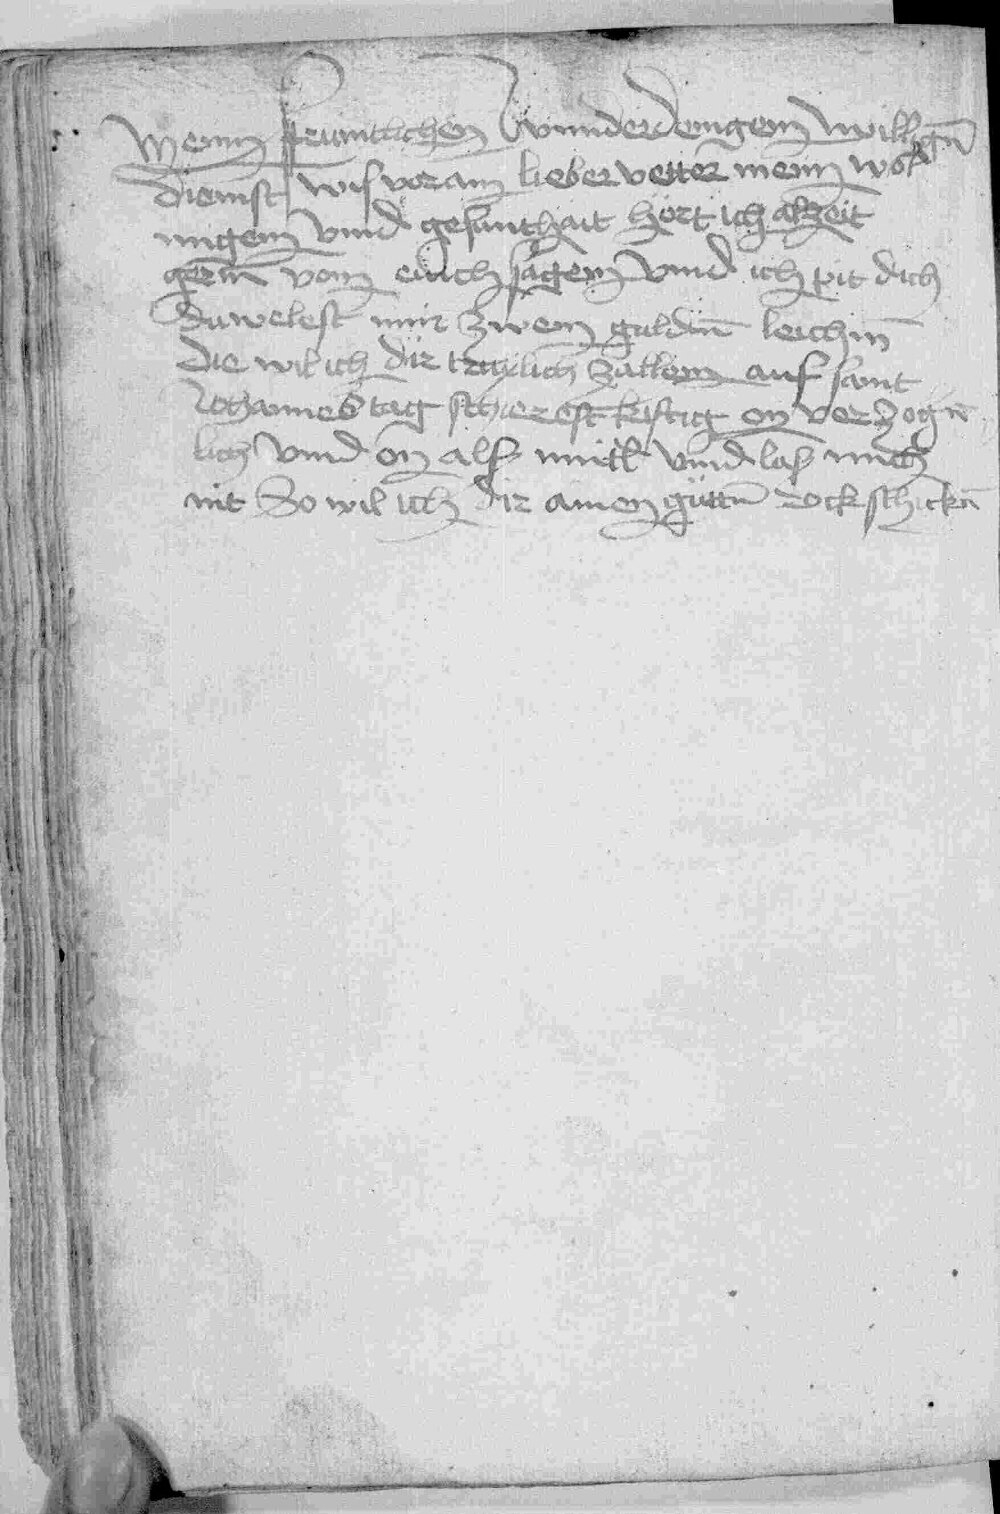 Mein fruntlichen vnnderdenigen willigñ
dienst wis voran lieber vetter mein wol
mugen vnnd gesunthait hört ich alzeit
geren von eiuch sagen vnnd ich pit dich
du welest mir zwen guldin leichñ
die wil ich dir treylich zallen auf sant
Johannes tag schierest kiftig on verzogñ
lich vnnd on als mitl vnnd las mich
nit So wil ich dir ainen güttñ rock schickñ